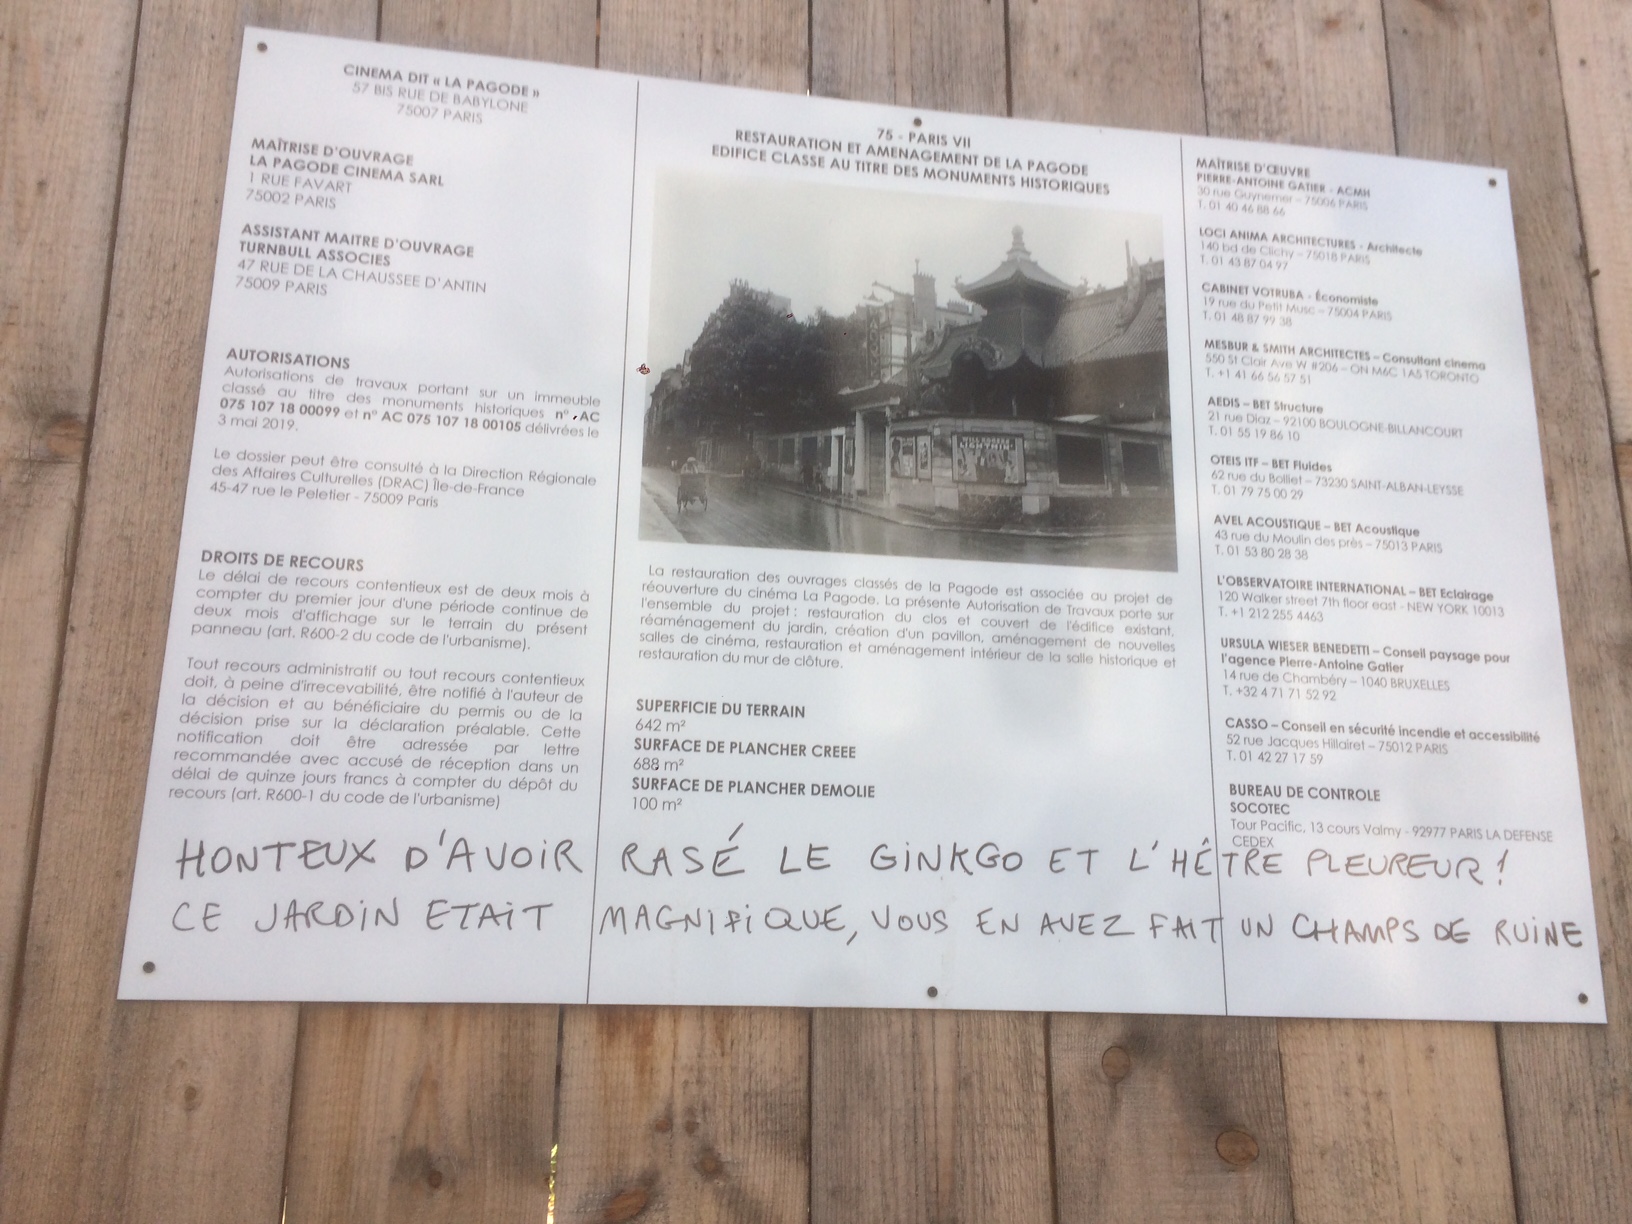 CINEMA DIT « LA PAGODE »
57 BIS RUE DE BABYLONE
75007 PARIS
MAÎTRISE D'OUVRAGE
LA PAGODE CINEMA SARL
1 RUE FAVART
75002 PARIS
ASSISTANT MAITRE D'OUVRAGE
TURNBULL ASSOCIES
47 RUE DE LA CHAUSSEE D'ANTIN
75009 PARIS
AUTORISATIONS
Autorisations de travaux portant sur un immeuble
classé au titre des monuments historiques n° AC
075 107 18 00099 et n° AC 075 107 18 00105 délivrées le
3 mai 2019.
Le dossier peut être consulté à la Direction Régionale
des Affaires Culturelles (DRAC) Île-de-France
45-47 rue le Peletier - 75009 Paris
DROITS DE RECOURS
Le délai de recours contentieux est de deux mois à
compter du premier jour d'une période continue de
deux mois d'affichage sur le terrain du présent
panneau (art. R600-2 du code de l'urbanisme).
Tout recours administratif ou tout recours contentieux
doit, à peine d'irrecevabilité, être notifié à l'auteur de
la décision et au bénéficiaire du permis ou de la
décision prise sur la déclaration préalable. Cette
notification doit être adressée par lettre
recommandée avec accusé de réception dans un
délai de quinze jours francs à compter du dépôt du
recours (art. R600-1 du code de l'urbanisme)
75 - PARIS VII
RESTAURATION ET AMENAGEMENT DE LA PAGODE
EDIFICE CLASSE AU TITRE DES MONUMENTS HISTORIQUES
LIGHTNIN
La restauration des ouvrages classés de la Pagode est associée au projet de
réouverture du cinéma La Pagode. La présente Autorisation de Travaux porte sur
l'ensemble du projet : restauration du clos et couvert de l'édifice existant,
réaménagement du jardin, création d'un pavillon, aménagement de nouvelles
salles de cinéma, restauration et aménagement intérieur de la salle historique et
restauration du mur de clôture.
SUPERFICIE DU TERRAIN
642 m²
SURFACE DE PLANCHER CREEE
688 m²
SURFACE DE PLANCHER DEMOLIE
100 m²
MAÎTRISE D'ŒUVRE
PIERRE-ANTOINE GATIER - ACMH
30 rue Guynemer – 75006 PARIS
T. 01 40 46 88 66
LOCI ANIMA ARCHITECTURES - Architecte
140 bd de Clichy – 75018 PARIS
T. 01 43 87 04 97
CABINET VOTRUBA - Économiste
19 rue du Petit Musc – 75004 PARIS
T. 01 48 87 99 38
MESBUR & SMITH ARCHITECTES – Consultant cinema
550 St Clair Ave W #206 – ON M6C 1A5 TORONTO
T. +1 41 66 56 57 51
AEDIS – BET Structure
21 rue Diaz – 92100 BOULOGNE-BILLANCOURT
T. 01 55 19 86 10
OTEIS ITF – BET Fluides
62 rue du Bolliet – 73230 SAINT-ALBAN-LEYSSE
T. 01 79 75 00 29
AVEL ACOUSTIQUE – BET Acoustique
43 rue du Moulin des près – 75013 PARIS
T. 01 53 80 28 38
L'OBSERVATOIRE INTERNATIONAL – BET Eclairage
120 Walker street 7th floor east - NEW YORK 10013
T. +1 212 255 4463
URSULA WIESER BENEDETTI – Conseil paysage pour
l'agence Pierre-Antoine Gatier
14 rue de Chambéry – 1040 BRUXELLES
T. +32 4 71 71 52 92
CASSO – Conseil en sécurité incendie et accessibilité
52 rue Jacques Hillairet – 75012 PARIS
T. 01 42 27 17 59
BUREAU DE CONTROLE
SOCOTEC
Tour Pacific, 13 cours Valmy - 92977 PARIS LA DEFENSE
CEDEX
HONTEUX D'AVOIR RASÉ LE GINKGO ET L'HÊTRE PLEUREUR !
CE JARDIN ETAIT MAGNIFIQUE, VOUS EN AVEZ FAIT UN CHAMPS DE RUINE